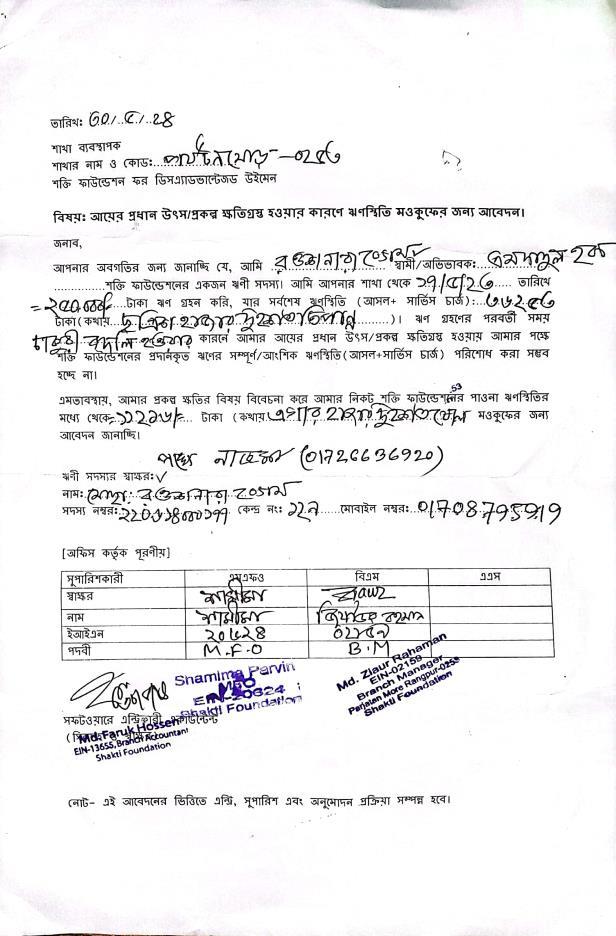 তারিখ: ৩০/৫/২৪
শাখা ব্যবস্থাপক
শাখার নাম ও কোড: পার্যটনমোড়-০২৫৩
শক্তি ফাউন্ডেশন ফর ডিসএ্যাডভান্টেজড উইমেন
বিষয়: আয়ের প্রধান উৎস/প্রকল্প ক্ষতিগ্রস্থ হওয়ার কারণে ঋণস্থিতি মওকুফের জন্য আবেদন।
জনাব,
আপনার অবগতির জন্য জানাচ্ছি যে, আমি রওশনারা বেগম স্বামী/অভিভাবক: এমদাদুল হক
শক্তি ফাউন্ডেশনের একজন ঋণী সদস্য। আমি আপনার শাখা থেকে ১৭/৫/২৩ তারিখে
টাকা ঋণ গ্রহন করি, যার সর্বশেষ ঋণস্থিতি (আসল+ সার্ভিস চার্জ):
টাকা(কথায়)। ঋণ গ্রহণের পরবর্তী সময়
কারনে আমার আয়ের প্রধান উৎস/প্রকল্প ক্ষতিগ্রস্থ হওয়ায় আমার পক্ষে
শক্তি ফাউন্ডেশনের প্রদানকৃত ঋণের সম্পূর্ণ/আংশিক ঋণস্থিতি(আসল+সার্ভিস চার্জ) পরিশোধ করা সম্ভব
হচ্ছে না।
এমতাবস্থায়, আমার প্রকল্প ক্ষতির বিষয় বিবেচনা করে আমার নিকট শক্তি ফাউন্ডেশনের পাওনা ঋণস্থিতির
মধ্যে থেকে টাকা (কথায় এগার হাজার দুইশত ষোল মওকুফের জন্য
আবেদন জানাচ্ছি।
পক্ষে (01726636920)
ঋণী সদস্যর স্বাক্ষর:
নাম: মোছা: রওশনারা বেগম
সদস্য নম্বর: কেন্দ্র নং: ১২ন মোবাইল নম্বর: 01708795919
[অফিস কর্তৃক পূরণীয়]
সুপারিশকারী এমএফও বিএম এএস
স্বাক্ষর শামীমা
নাম শামীমা জিয়াউর রহমান
ইআইএন ২০৬২৪ ০২১৫৯
পদবী M.F.O B.M
Shamima Parvin
MFO
EIN-20624
Shakti Foundation
Md. Ziaur Rahaman
EIN-02159
Branch Manager
Parjatan More Rangpur-0253
Shakti Foundation
সফটওয়ারে এন্ট্রিকারী একাউন্টেন্ট
Md. Faruk Hossen
EIN-13655, Branch Accountant
Shakti Foundation
নোট- এই আবেদনের ভিত্তিতে এন্ট্রি, সুপারিশ এবং অনুমোদন প্রক্রিয়া সম্পন্ন হবে।